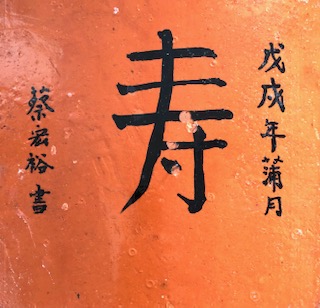 戊戌年蒲月
寿
蔡宏裕書